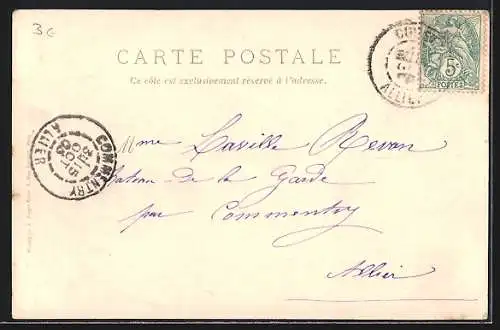 3€
CARTE POSTALE
Ce côté est exclusivement réservé à l'adresse.
5c
POSTES
ALLIER
COMMENTRY
ALLIER
Mme Laville Revan
Chateau de la Garde
par Commentry
Allier